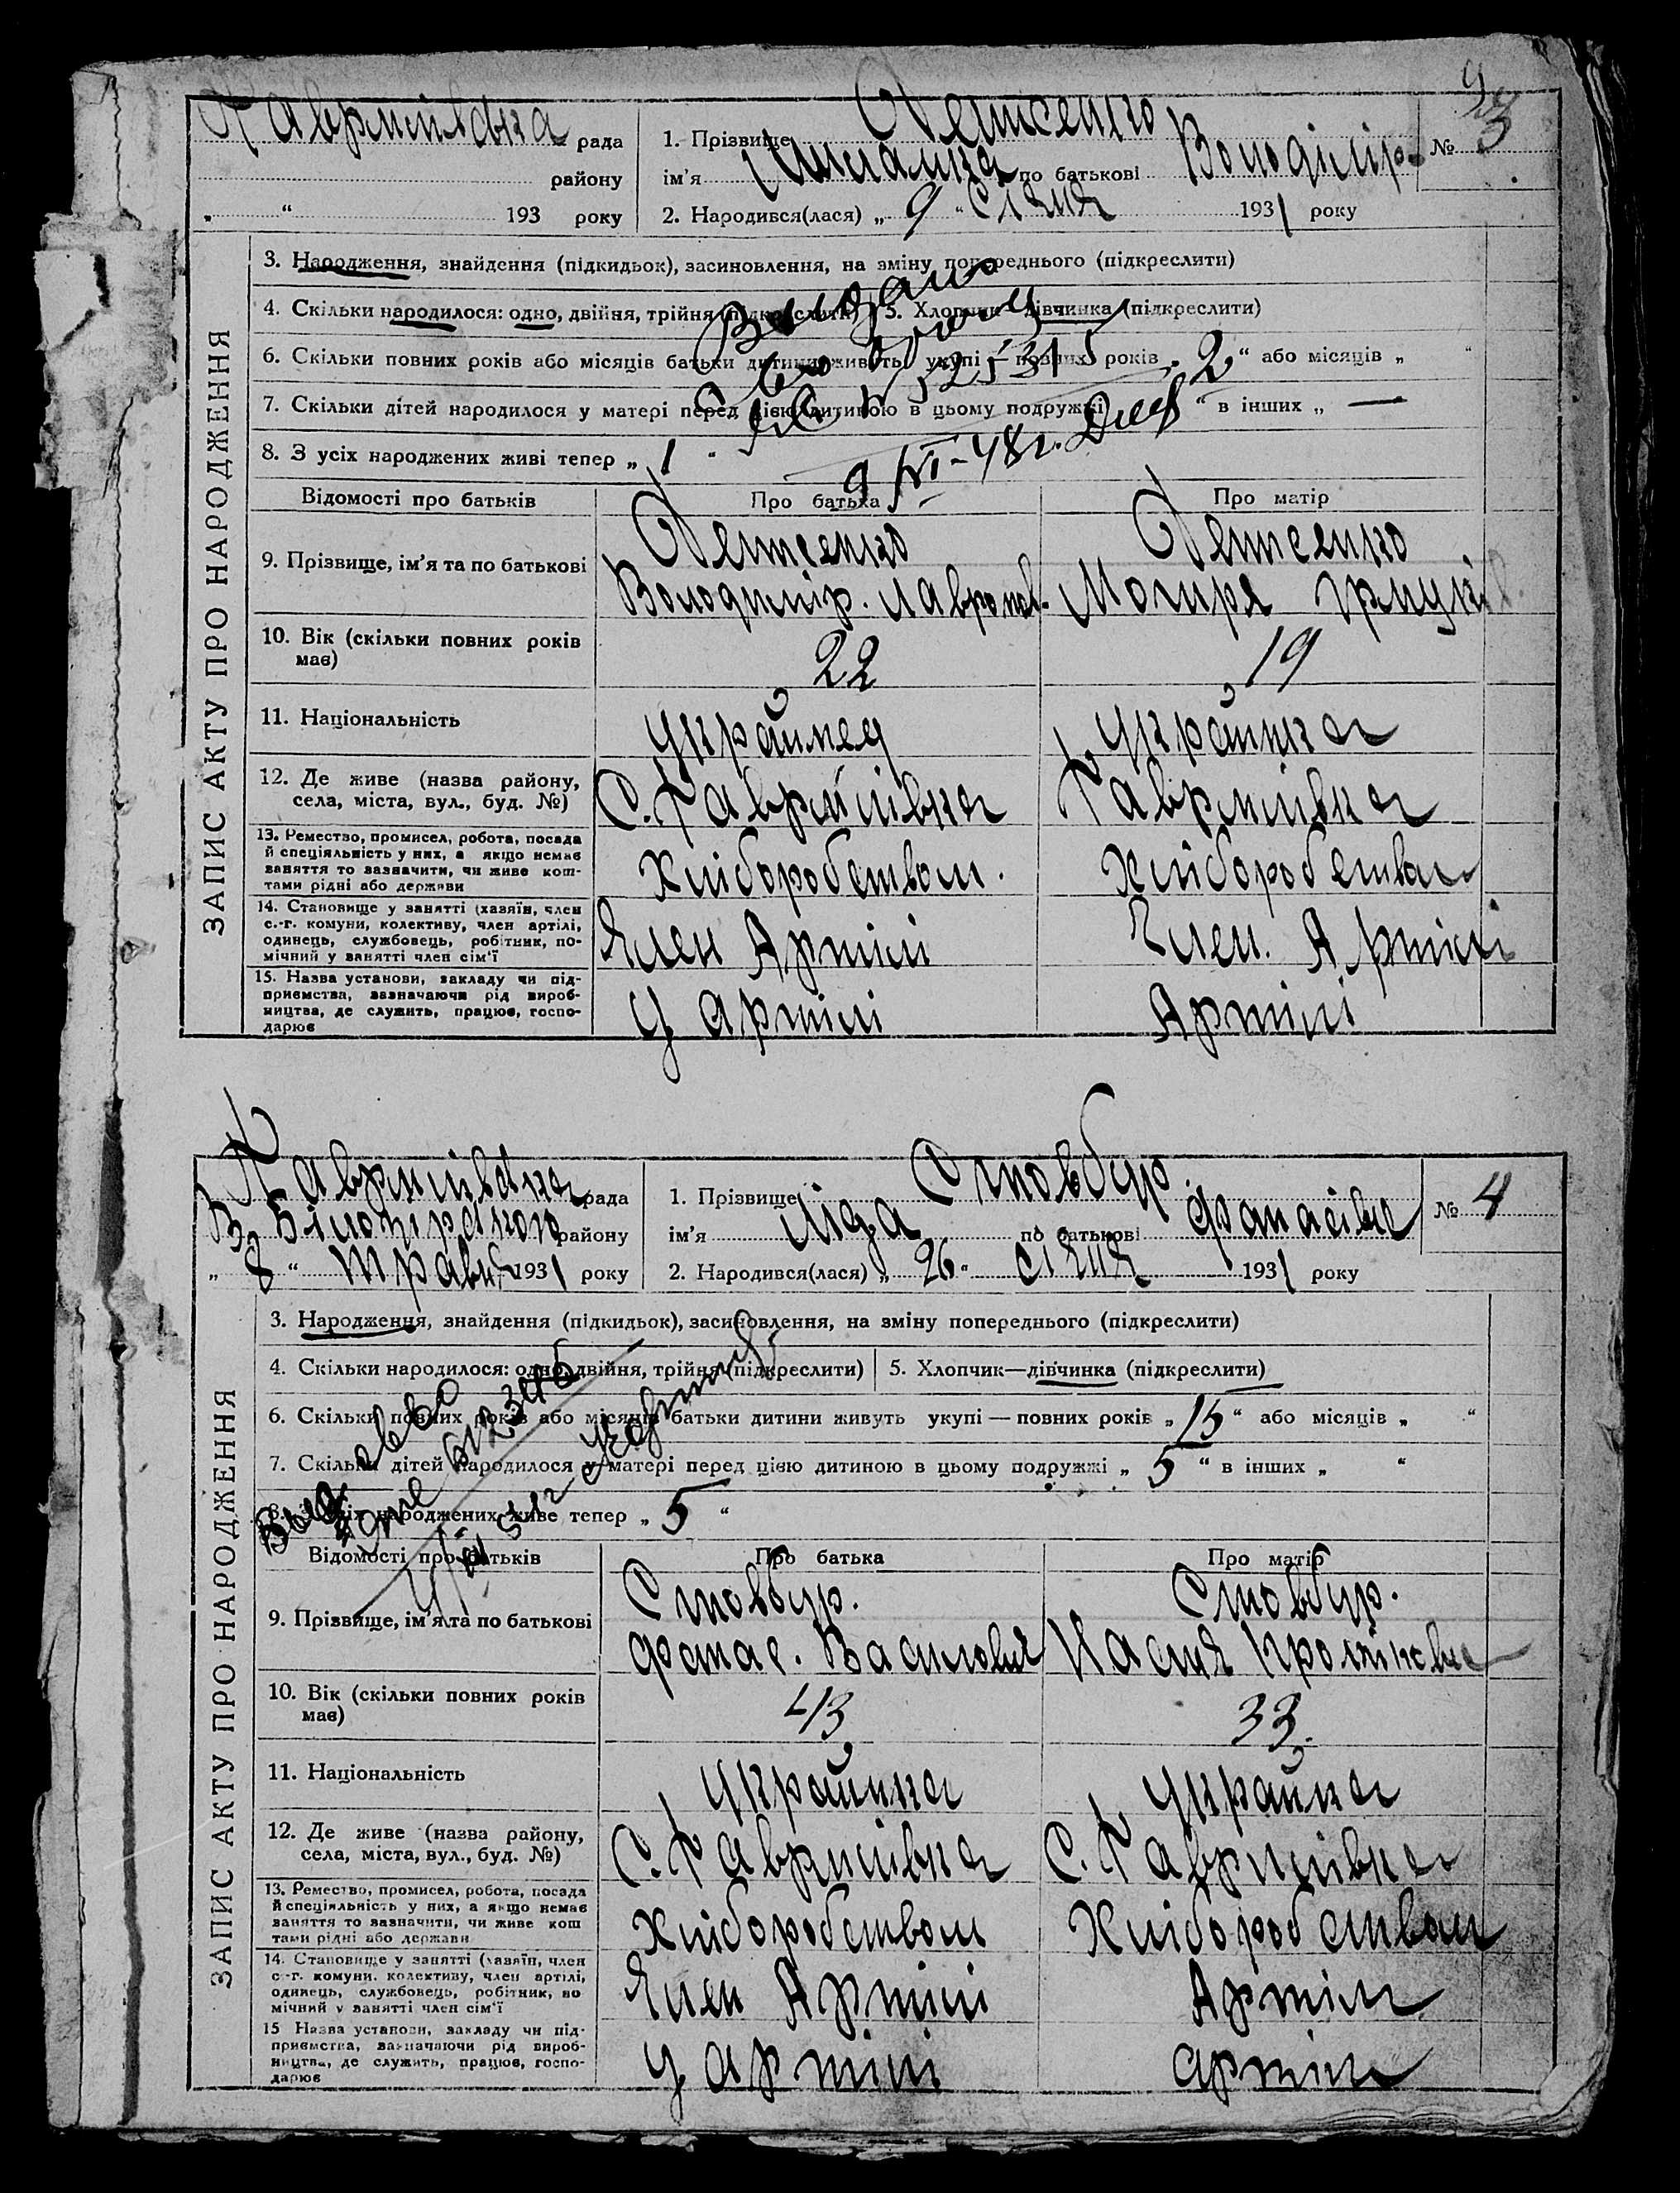 Гаврилівська рада
району
„ “ 193 року
1. Прізвище
ім'я по батькові Володімір.
№ 3
2. Народився(лася) „ 9 “ січня 1931 року
ЗАПИС АКТУ ПРО НАРОДЖЕННЯ
3. Народження, знайдення (підкидьок), засиновлення, на зміну попереднього (підкреслити)
4. Скільки народилося: одно, двійня, трійня (підкреслити) 5. Хлопчик — дівчинка (підкреслити)
6. Скільки повних років або місяців батьки дитини живуть укупі — повних років „ 2 “ або місяців „ “
7. Скільки дітей народилося у матері перед цією дитиною в цьому подружжі “ в інших „ —
8. З усіх народжених живі тепер „ 1 “
9/VI-48г.
Відомості про батьків Про батька Про матір
9. Прізвище, ім'я та по батькові
Володимір.
10. Вік (скільки повних років має) 22 19
11. Національність Українец Українка
12. Де живе (назва району, села, міста, вул., буд. №) С. Гаврилівка Гаврилівка
13. Ремество, промисел, робота, посада й спеціяльність у них, а якщо немає заняття то зазначити, чи живе коштами рідні або держави
Хліборобством. Хліборобством
14. Становище у занятті (хазяїн, член с.-г. комуни, колективу, член артілі, одинець, службовець, робітник, помічний у занятті член сім'ї
Член Артілі Член. Артілі
15. Назва установи, закладу чи підприємства, зазначаючи рід виробництва, де служить, працює, господарює
У артілі Артілі
Гаврилівська рада
В. Білозірского району
„ 8 “ травня 1931 року
1. Прізвище Стовбур.
ім'я Ліда по батькові Фанасівна
№ 4
2. Народився(лася) „ 26 “ січня 1931 року
ЗАПИС АКТУ ПРО НАРОДЖЕННЯ
3. Народження, знайдення (підкидьок), засиновлення, на зміну попереднього (підкреслити)
4. Скільки народилося: одно, двійня, трійня (підкреслити) 5. Хлопчик—дівчинка (підкреслити)
6. Скільки повних років або місяців батьки дитини живуть укупі — повних років „ 15 “ або місяців „ “
7. Скільки дітей народилося у матері перед цією дитиною в цьому подружжі „ 5 “ в інших „ “
8. З усіх народжених живе тепер „ 5 “
Відомості про батьків Про батька Про матір
9. Прізвище, ім'я та по батькові
Стовбур. Стовбур.
Фанас. Василовіч
10. Вік (скільки повних років має) 43 33.
11. Національність Українка Українка
12. Де живе (назва району, села, міста, вул., буд. №) С. Гаврилівка С. Гаврилівка
13. Ремество, промисел, робота, посада й спеціяльність у них, а якщо немає заняття то зазначити, чи живе коштами рідні або держави
Хліборобством Хліборобством
14. Становище у занятті (хазяїн, член с.-г. комуни, колективу, член артілі, одинець, службовець, робітник, помічний у занятті член сім'ї
Член Артілі Артілі
15 Назва установи, закладу чи підприємства, зазначаючи рід виробництва, де служить, працює, господарює
У артілі артілі